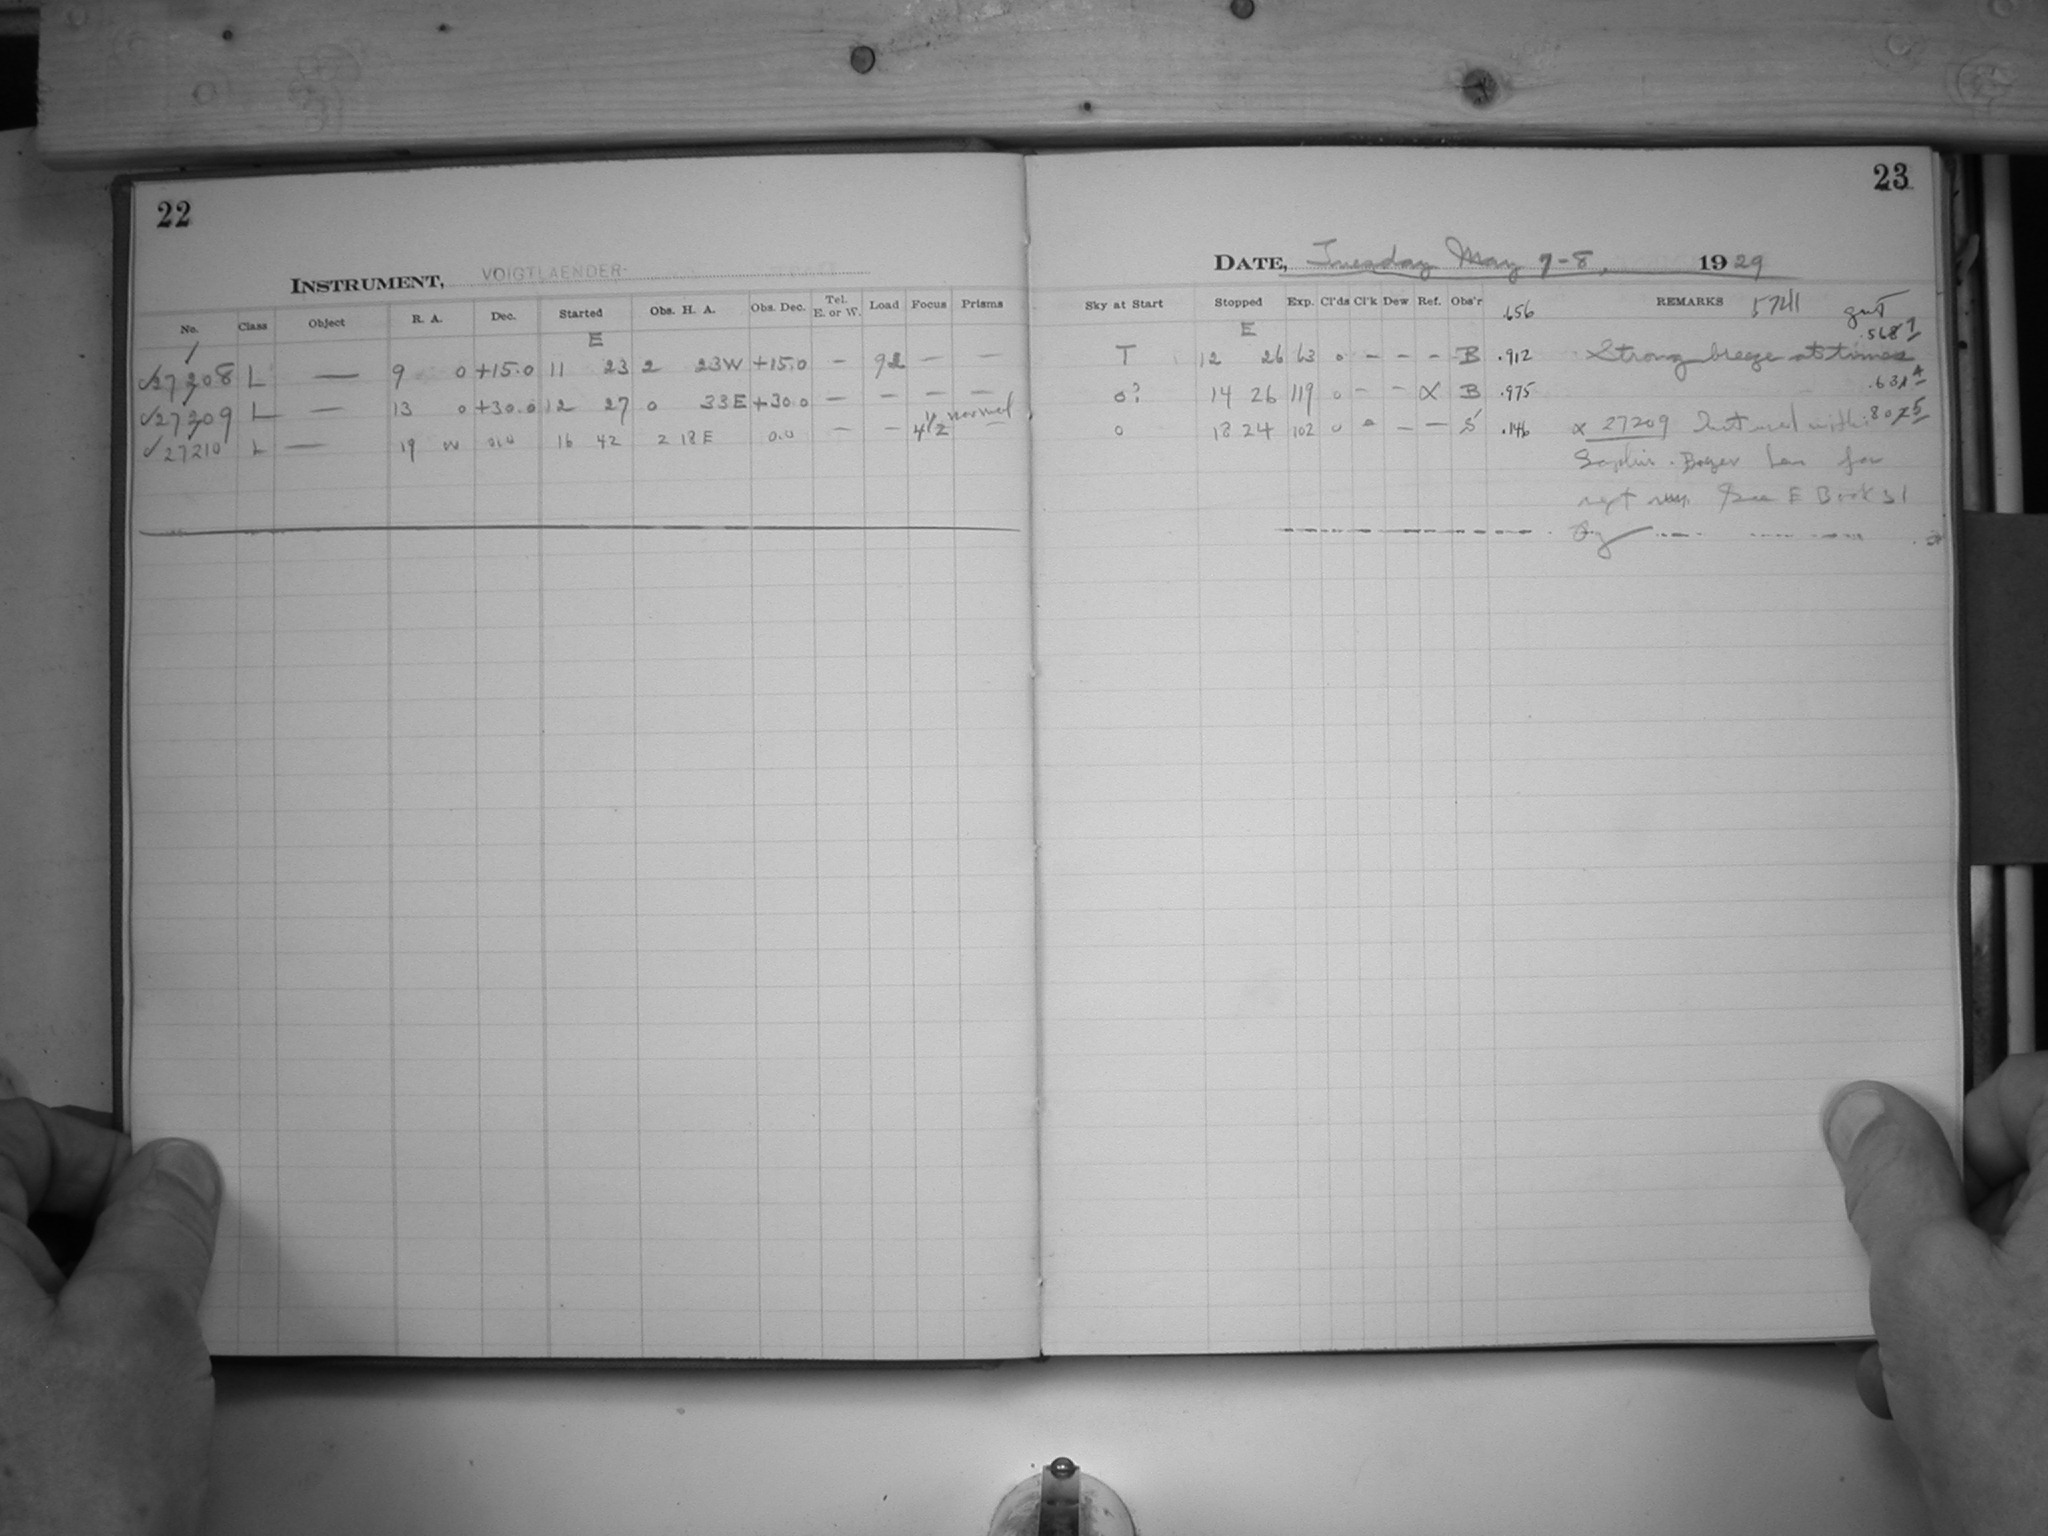 22
INSTRUMENT, VOIGTLAENDER
No. Class Object R. A. Dec. Started Obs. H. A. Obs. Dec. Tel. E. or W. Load Focus Prisms
E
✓27208 L — 9 0 +15.0 11 23 2 23W +15.0 — 92 — —
✓27209 L — 13 0 +30.0 12 27 0 33E +30.0 — — — —
✓27210 L — 19 0.0 16 42 2 18E 0.0 — — 4 1/2 normal
23
DATE, Tuesday May 7-8, 1929
Sky at Start Stopped Exp. Cl'ds Cl'k Dew Ref. Obs'r .656 REMARKS 5741 gmt
E
T 12 26 63 0 - - - B .912 Strong breeze at times
0? 14 26 119 0 - - X B .975
0 18 24 102 0 - - S .146 x 27209 with .8075
See E Book 31